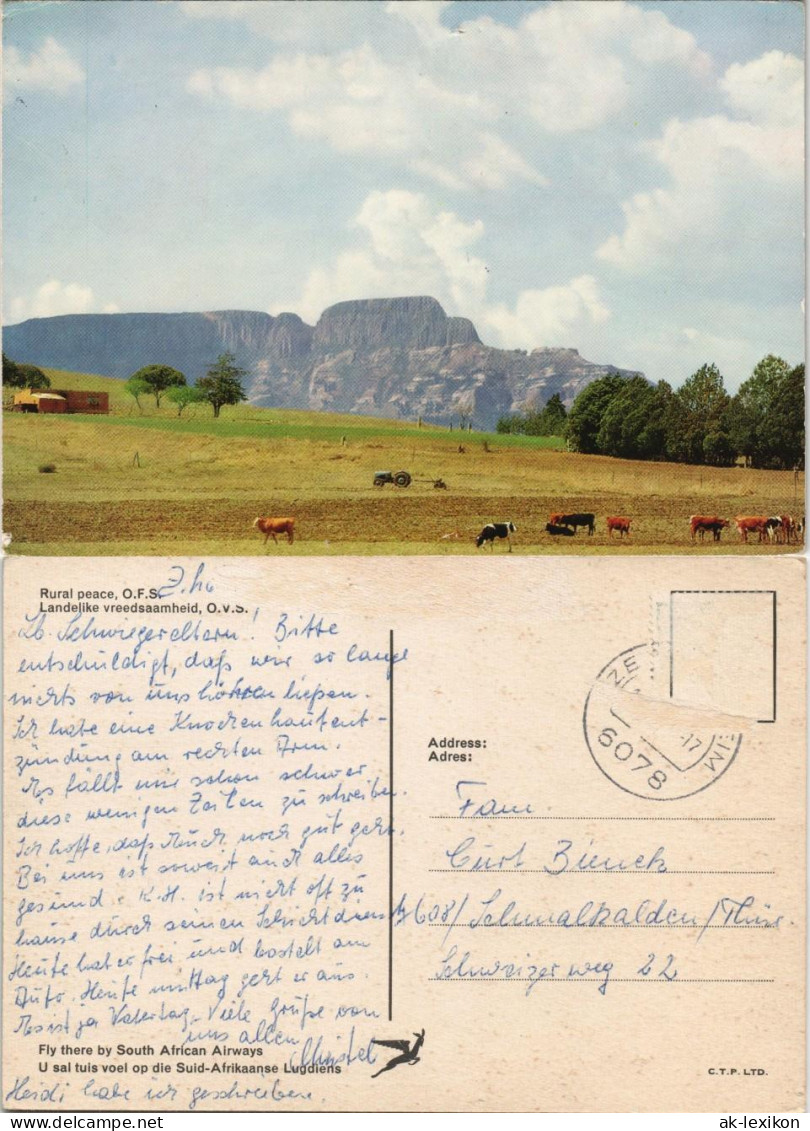 Rural peace, O.F.S.
Landelike vreedsaamheid, O.v.S.
Lb. Schwiegereltern! Bitte
entschuldigt, daß wir so lange
nichts von uns hören ließen.
Ich habe eine Knochenhautent-
zündung am rechten Arm.
Es fällt mir schon schwer
diese wenigen Zeilen zu schreiben.
Ich hoffe, daß Euch noch gut geht.
Bei uns ist soweit auch alles
gesund. K.H. ist nicht oft zu
hause durch seinen Schichtdienst.
Heute hat er frei und bastelt am
Auto. Heute mittag geht er aus.
Es ist ja Vatertag. Viele Grüße von
uns allen
Christel
Heidi habe ich geschrieben.
Fly there by South African Airways
U sal tuis voel op die Suid-Afrikaanse Lugdiens
6078
17
Address:
Adres:
Fam.
Curt Bienck
608/ Schmalkalden/Thür.
Schweizerweg 22
C.T.P. LTD.
ak-lexikon